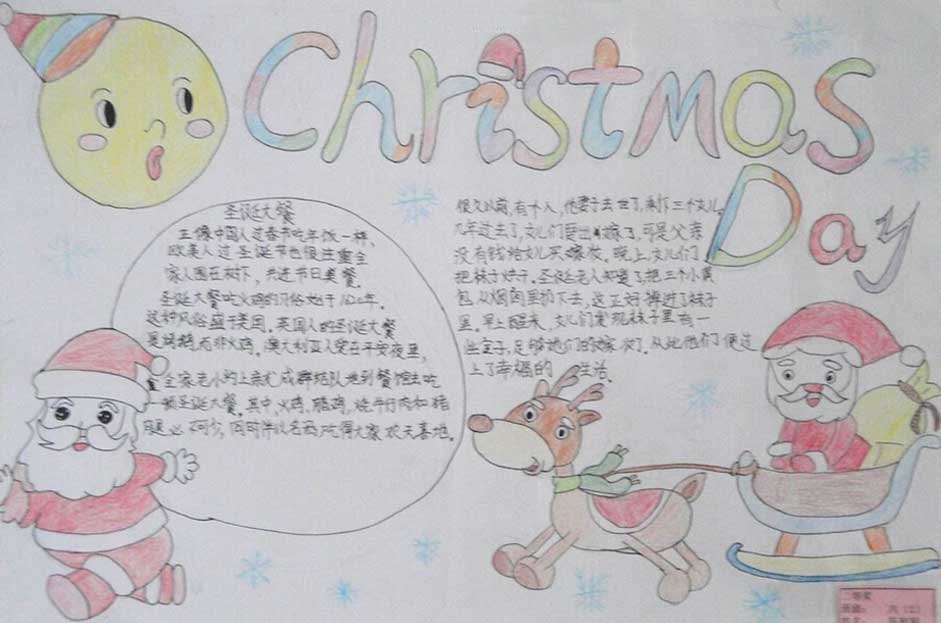 Christmas
Day
圣诞大餐
正像中国人过春节吃年饭一样、
欧美人过圣诞节也很注重全
家人围在树下，共进节日美餐。
圣诞大餐吃火鸡的习俗始于1620年。
这种风俗盛于美国。英国人的圣诞大餐
是烤鹅，而非火鸡。澳大利亚人爱在平安夜里，
全家老小约上亲友成群结队地到餐馆去吃
一顿圣诞大餐。其中，火鸡、腊鸡、烧牛仔肉和猪
必不可少，同时伴以名酒，吃得大家欢天喜地。
很久以前，有个人，他妻子去世了，剩下三个女儿。
几年过去了，女儿们要出嫁了，可是父亲
没有钱给女儿买嫁妆。晚上，女儿们
把袜子烘干。圣诞老人知道了，把三个小黄
包从烟囱里扔下去，这正好掉进了袜子
里。早上醒来，女儿们发现袜子里有一
些金子，足够她们的嫁妆了。从此他们便过
上了幸福的生活。
二等奖
班级：
姓名：